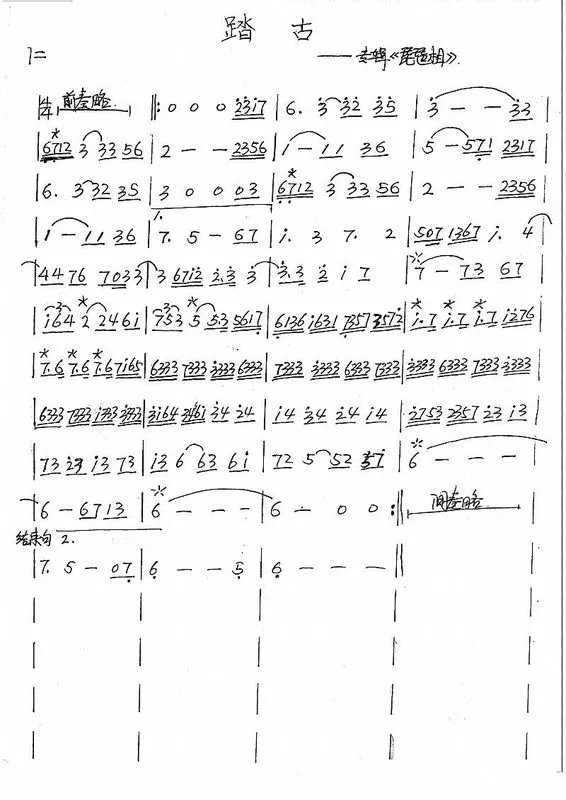 踏古
1=
——专辑《琵琶相》.
4/4 前奏略. ‖: 0 0 0 2317 | 6. 3 32 35 | 3 - - 33
6712 3 33 56 | 2 - - 2356 | 1 - 11 36 | 5 - 571 2317
6. 3 32 35 | 3 0 0 03 | 6712 3 33 56 | 2 - - 2356
1 - 11 36 | 1. 7. 5 - 67 | i. 3 7. 2 | 507 1367 i. 4
44 76 70 33 | 3 6712 2.3 3 | 3.3 2 i 7 | 7 - 73 67
i64 2 246i | 753 5 53 5617 | 6136 i631 7357 3572 | i.7 i.7 i.7 i276
7.6 7.6 7.6 7i65 | 6333 7333 3333 6333 | 7333 3333 6333 7333 | 3333 6333 7333 3333
6333 7333 i333 3333 | 2i64 246i 24 24 | i4 24 24 i4 | 2753 2357 23 i3
73 23 i3 73 | i3 6 63 6i | 72 5 52 35i | 6 - - -
6 - 6713 | 6 - - - | 6 - 0 0 :‖ 间奏略
结束句 2.
7. 5 - 07 | 6 - - 5 | 6 - - - ‖